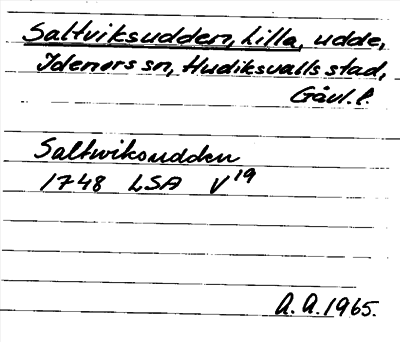 Saltviksudden, Lilla, udde,
Idenors sn, Hudiksvalls stad,
Gävl. l.
Saltwiksudden
1748 LSA V19
A. A. 1965.